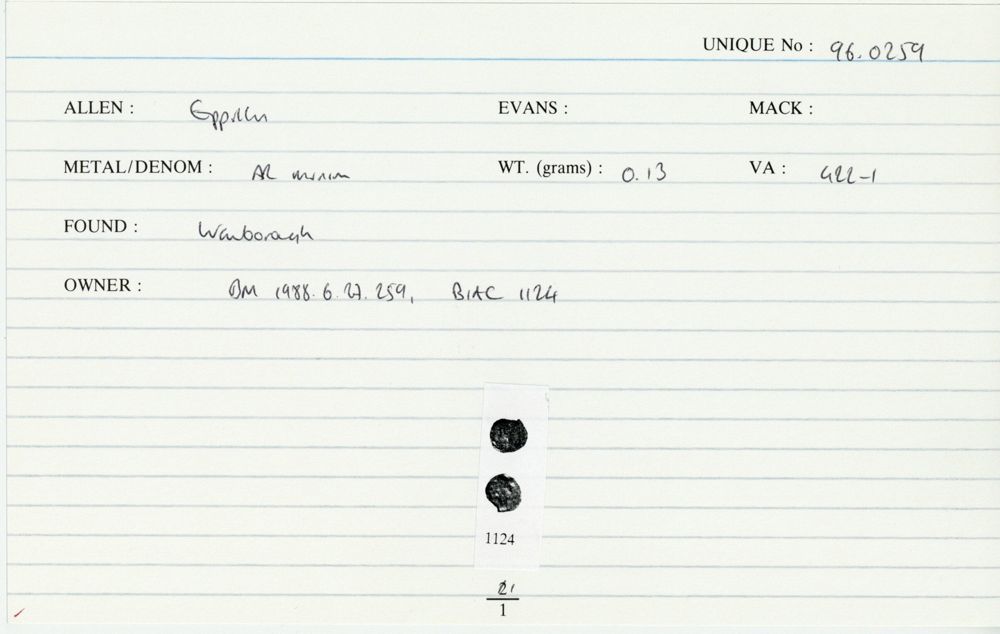 UNIQUE No : 96.0259
ALLEN : Eppillu EVANS : MACK :
METAL/DENOM : AR minim WT. (grams) : 0.13 VA : 422-1
FOUND : Wanborough
OWNER : BM 1988.6.27.259, BIAC 1124
1124
2/
1